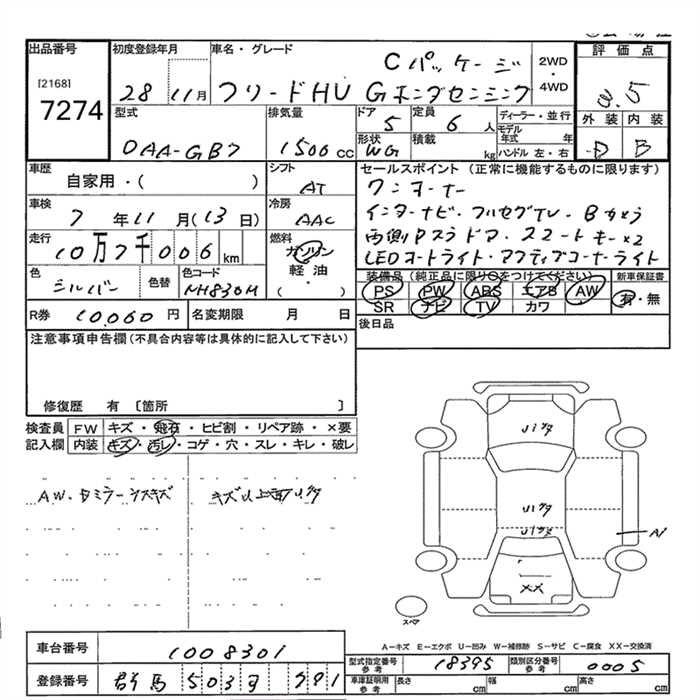 出品番号
[2168]
7274
初度登録年月
28 11月
車名・グレード
Cパッケージ
フリードHV Gホンダセンシング
2WD
・
4WD
評価点
3.5
外装 内装
D B
型式
DAA-GB7
排気量
1500cc
ドア
5
定員
6人
形状
WG
積載
kg
ディーラー・並行
モデル年式 年
ハンドル 左・右
車歴
自家用・( )
シフト
AT
車検
7年11月(13日)
冷房
AAC
走行
10万7千006km
燃料
ガソリン
軽油
・( )
色
シルバー
色替
色コード
NH830M
セールスポイント(正常に機能するものに限ります)
ワンオーナー
インターナビ・フルセグTV・Bカメラ
両側Pスラドア・スマートキー×2
LEDオートライト・アクティブコーナーライト
装備品(純正品に限り○をつけてください)
新車保証書
PS PW ABS エアB AW
有・無
SR ナビ TV カワ
後日品
R券 10060円
名変期限 月 日
注意事項申告欄(不具合内容等は具体的に記入して下さい)
修復歴 有〔箇所 〕
検査員記入欄
FW キズ・飛石・ヒビ割・リペア跡・×要
内装 キズ・汚レ・コゲ・穴・スレ・キレ・破レ
AW・Dミラーンスキズ
キズ
A1
XX
スペア
A-キズ E-エクボ U-凹み W-補修跡 S-サビ C-腐食 XX-交換済
車台番号 1008301
登録番号 群馬 503
型式指定番号 参考 18395
類別区分番号 参考 0005
車庫証明用 参考 長さ cm 幅 cm 高さ cm